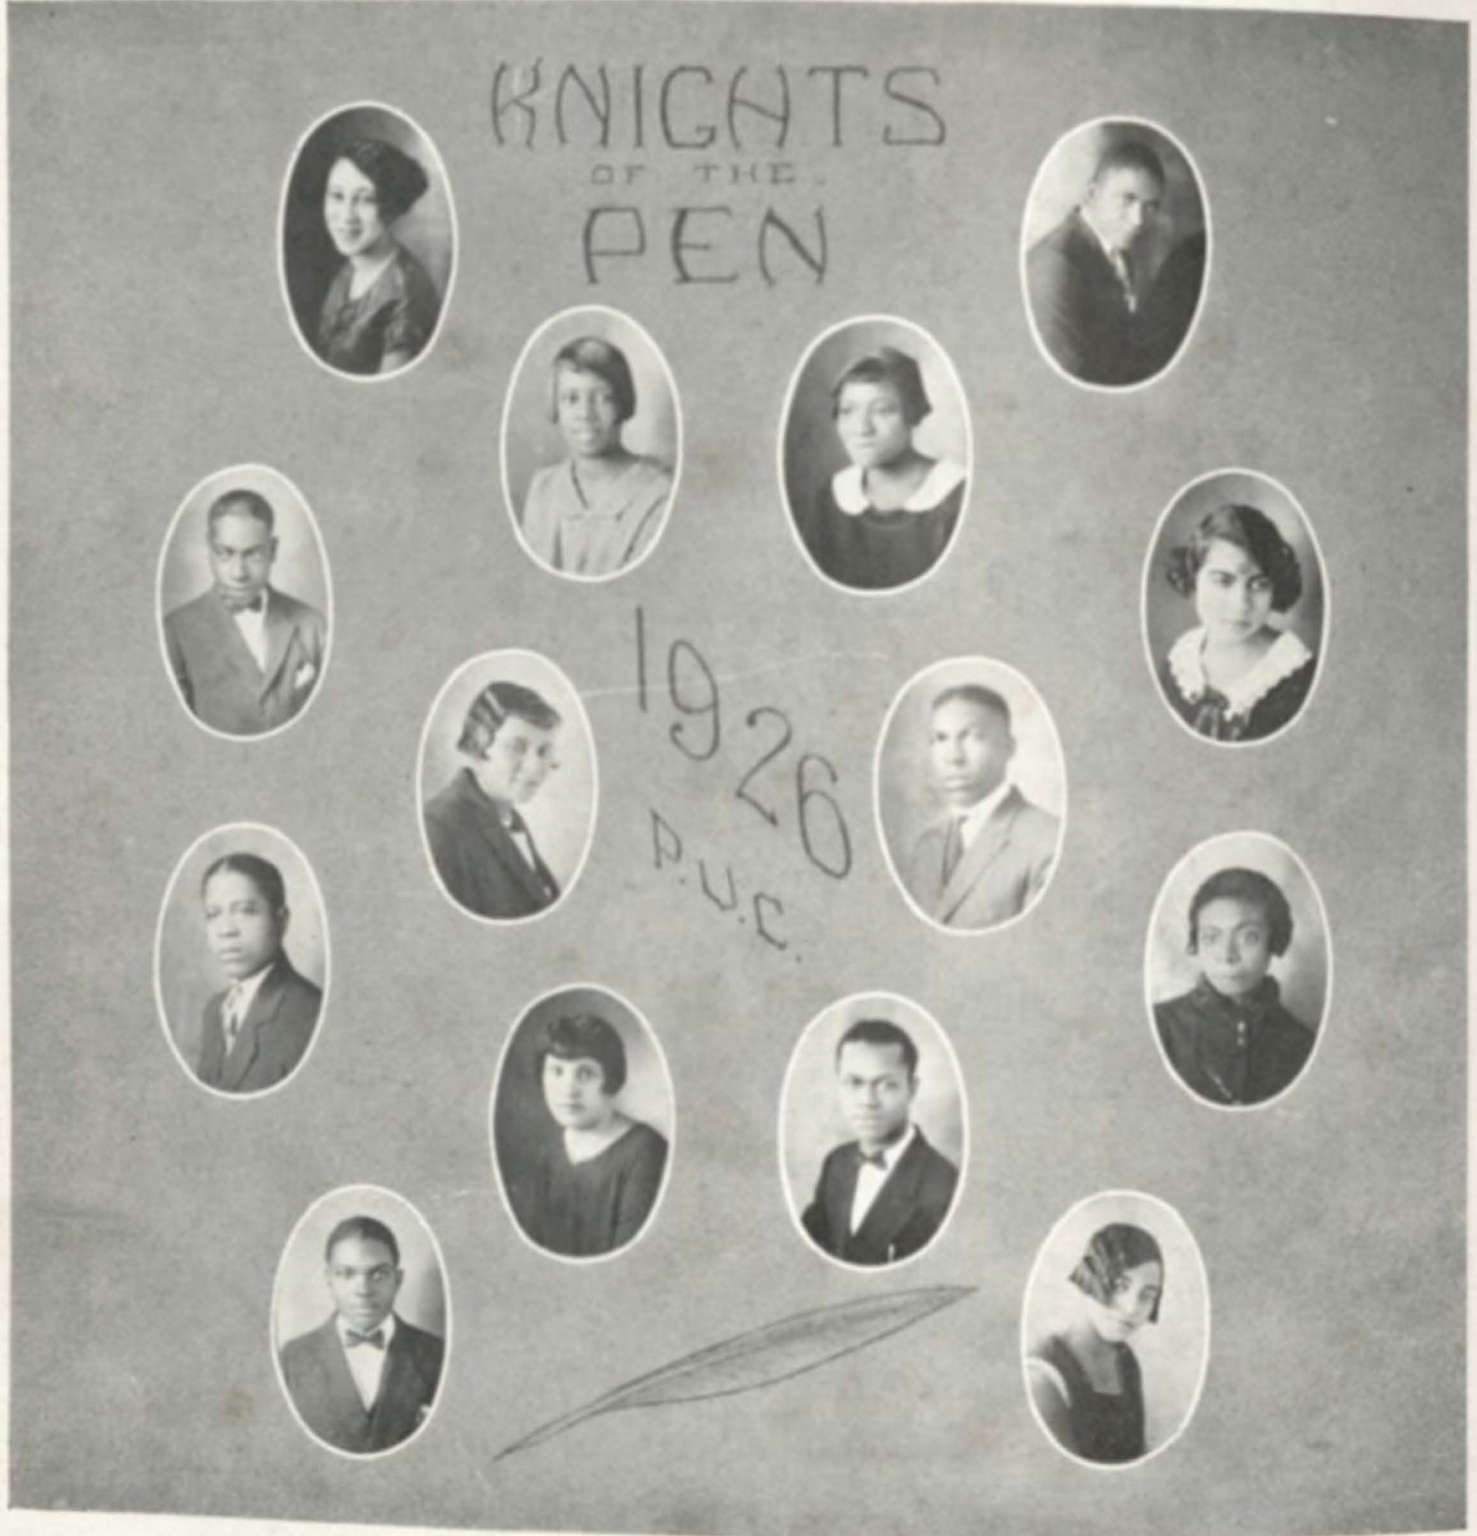 KNIGHTS
OF THE
PEN
1926
P.V.C.